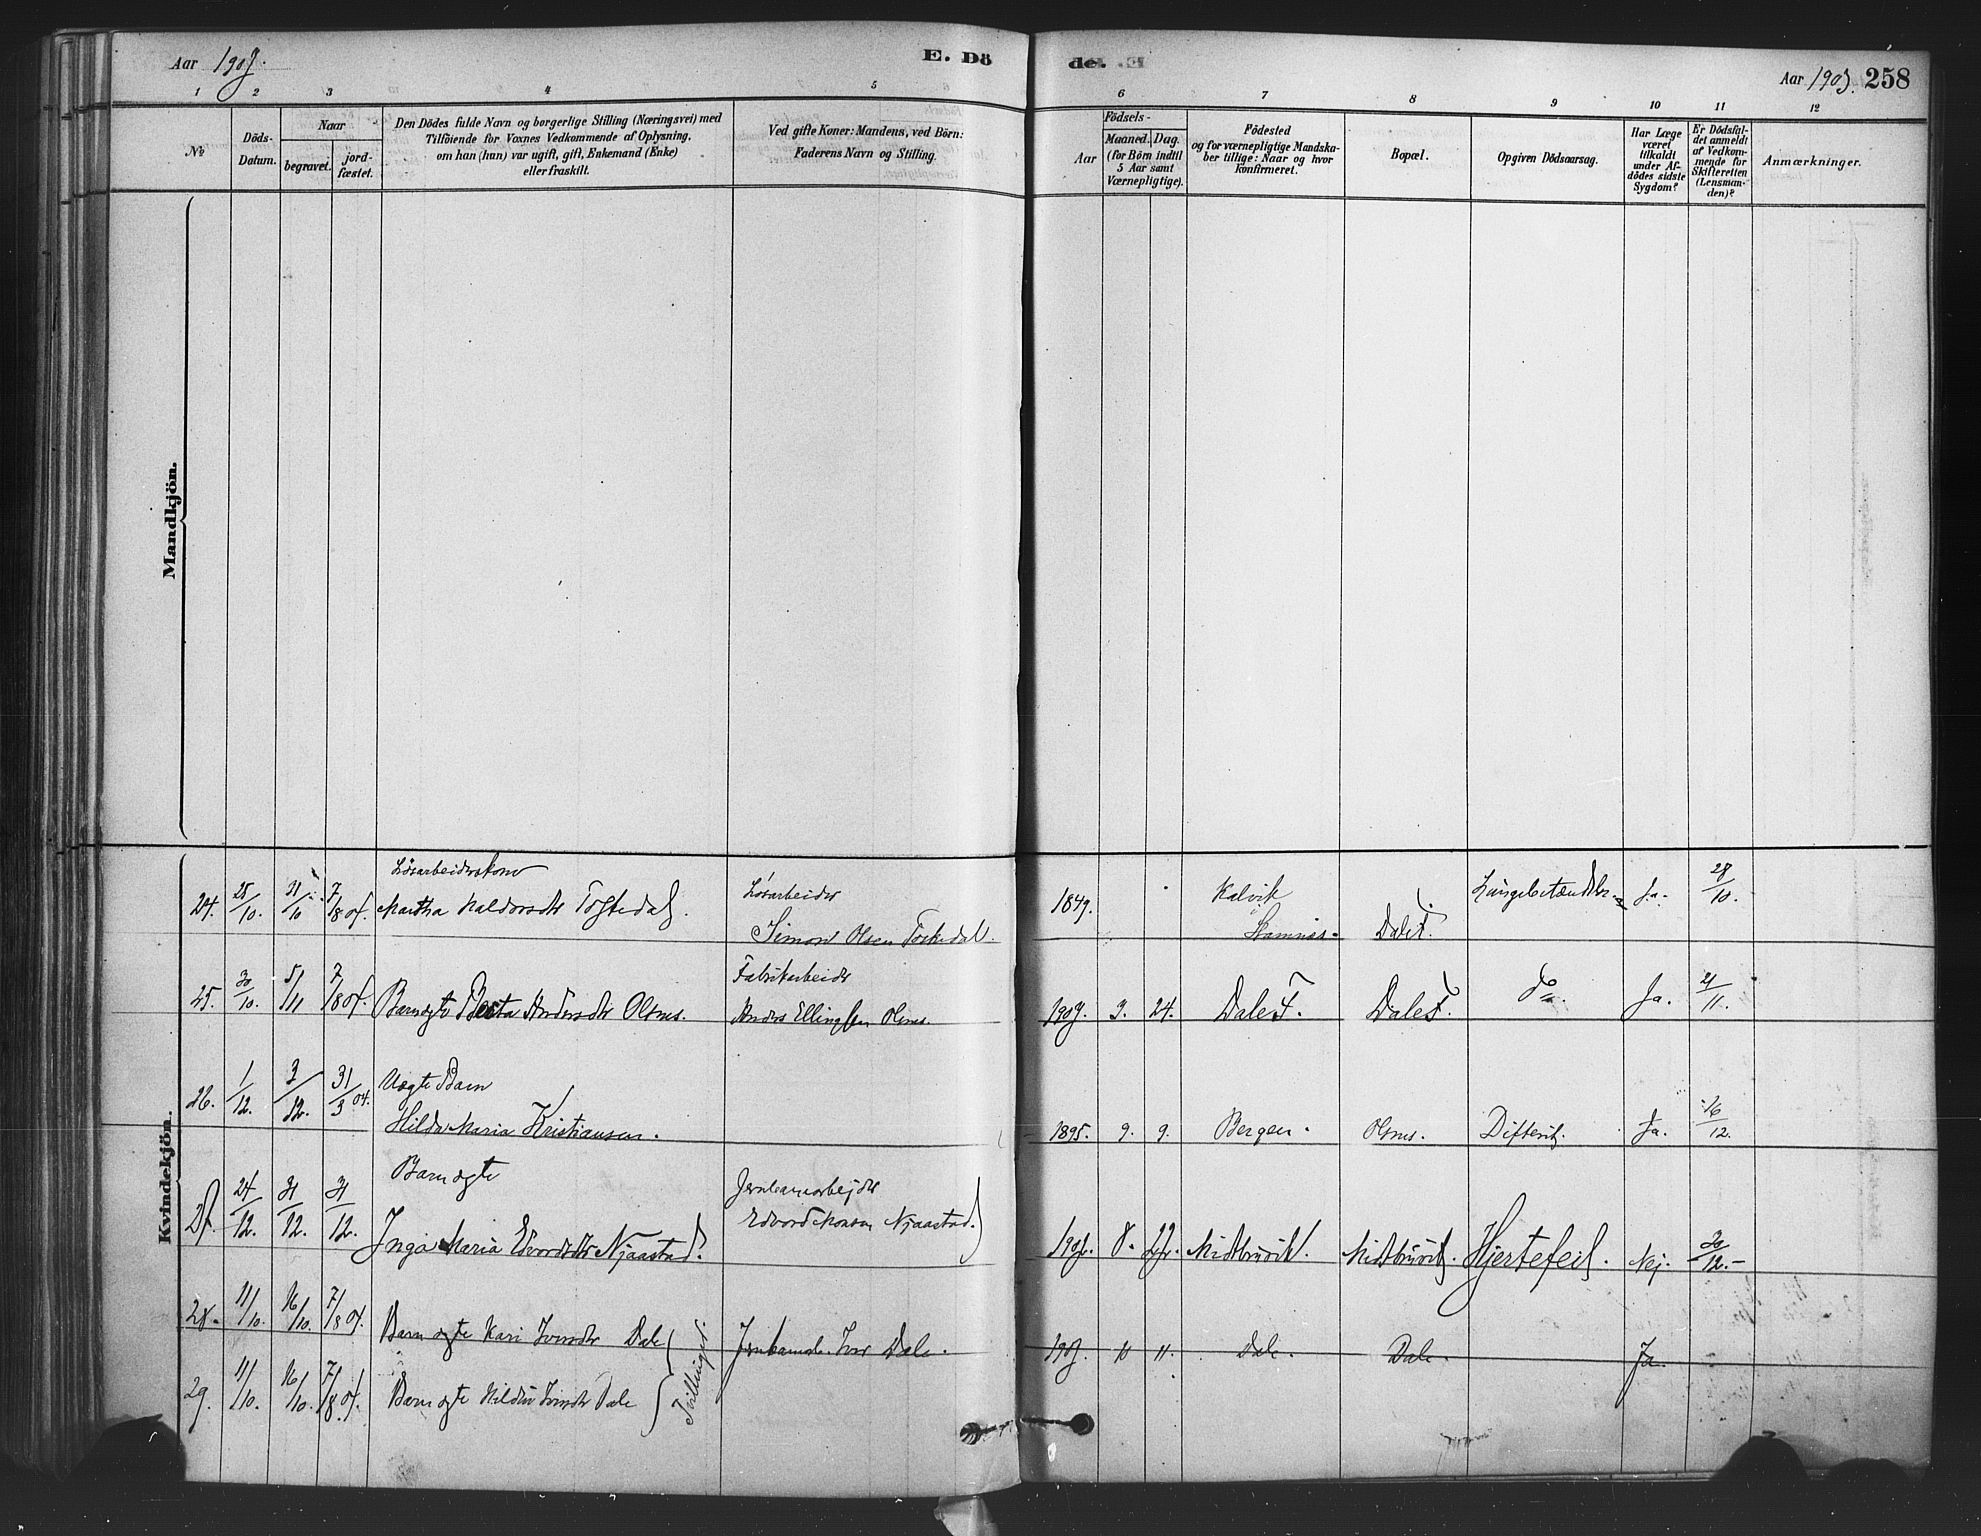 Aar 1903.
E. Dö
de.
Aar 1903. 258
1 2 3 4 5
6 7 8 9 10 11 12
No
Döds-
Datum.
Naar
begravet.
jord-
fæstet.
Den Dödes fulde Navn og borgerlige Stilling (Næringsvei) med
Tilföiende for Voxnes Vedkommende af Oplysning,
om han (hun) var ugift, gift, Enkemand (Enke)
eller fraskilt.
Ved gifte Koner: Mandens, ved Börn:
Faderens Navn og Stilling.
Födsels-
Aar
Maaned. Dag.
(for Börn indtil
5 Aar samt
Værnepligtige).
Födested
og for værnepligtige Mandska-
ber tillige: Naar og hvor
konfirmeret.
Bopæl.
Opgiven Dödsaarsag.
Har Læge
været
tilkaldt
under Af-
dödes sidste
Sygdom?
Er Dödsfal-
det anmeldt
af Vedkom-
mende for
Skifteretten
(Lensman-
den)?
Anmærkninger.
Mandkjön.
Kvindekjön.
Lösarbeiderskone
24. 25/10. 31/10 7/8 04. Martha Haldorsdtr
Lösarbeider
Simon Olsen
1849. Kalvik Stamnes. Dale F. Lungebetændelse Ja. 28/10.
25. 30/10. 5/11 7/8 04. Barn ægte Berta Andersdtr Olsnes.
Fabrikarbeider
Anders Ellingsen Olsnes.
1903. 3. 24. Dale F. Dale F. do Ja. 21/11.
26. 1/12. 3/12. 31/3 04. Uægte Barn
Hilda Maria Kristiansen.
1895. 9. 9. Bergen. Olsnes. Difterit. Ja. 16/12.
Barn ægte
27. 24/12. 31/12. 31/12. Inga Maria Edvardsdtr Njaastad.
Jernbanearbejder
Edvard Monsen Njaastad.
8. Midtbruvik. Hjertefeil. Nej. 30/12.
28. 11/10. 16/10. 7/8 04. Barn ægte Kari Iversdtr Dale
Iver Dale.
1903. 10 11. Dale. Dale. Ja.
29. 11/10. 16/10. 7/8 04. Barn ægte Iversdtr Dale
Tvillinger.